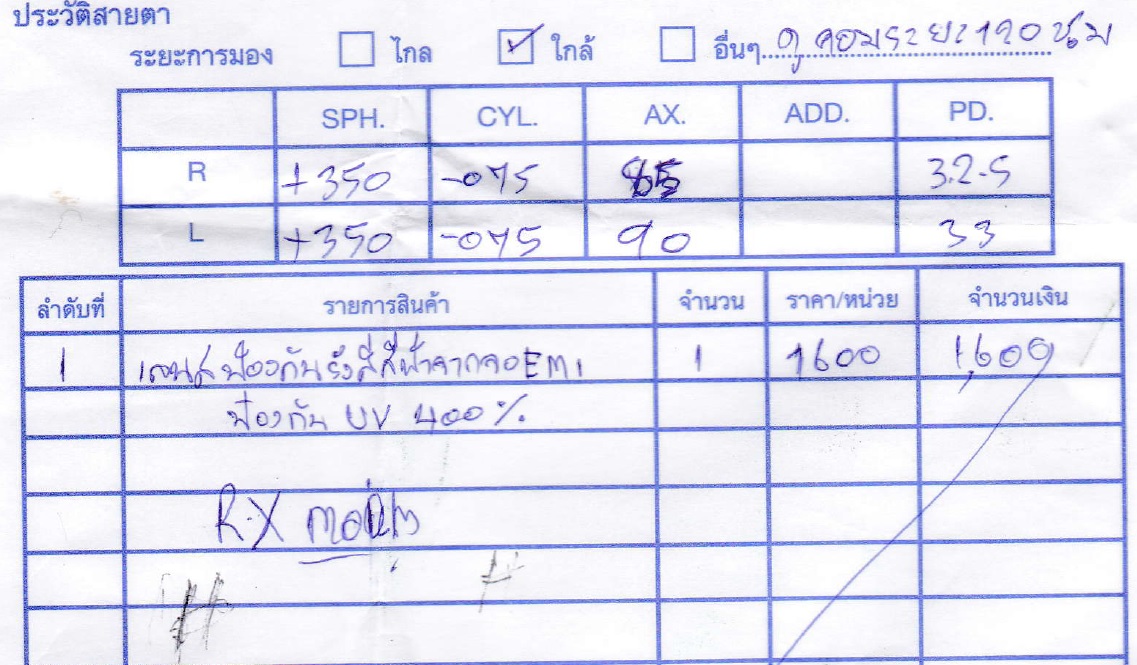 ประวัติสายตา
ระยะการมอง ไกล ใกล้ อื่นๆ ดูคอมระยะ 120 ซม
SPH. CYL. AX. ADD. PD.
R +350 -075 85 32.5
L +350 -075 90 33
ลำดับที่ รายการสินค้า จำนวน ราคา/หน่วย จำนวนเงิน
1 เลนส์ป้องกันรังสีสีฟ้าจากจอ EMI 1 1600 1,600
ป้องกัน UV 400 %
R-X